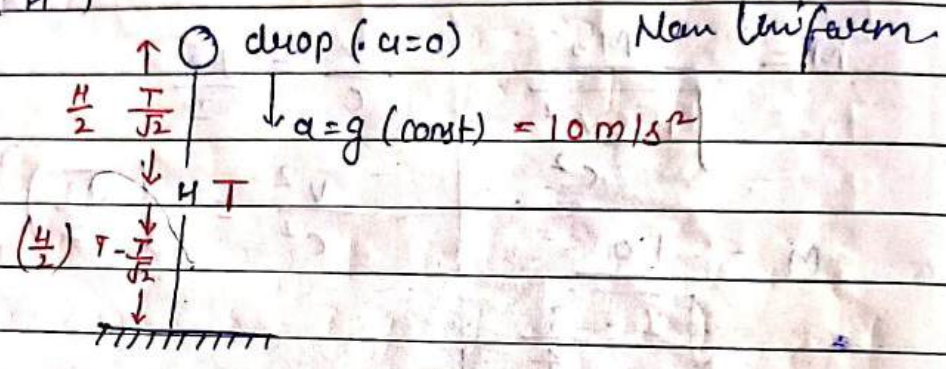 drop (. u=0)
Non Uniform
H/2 T/√2
a=g (const) = 10 m/s²
H T
(H/2) T-T/√2